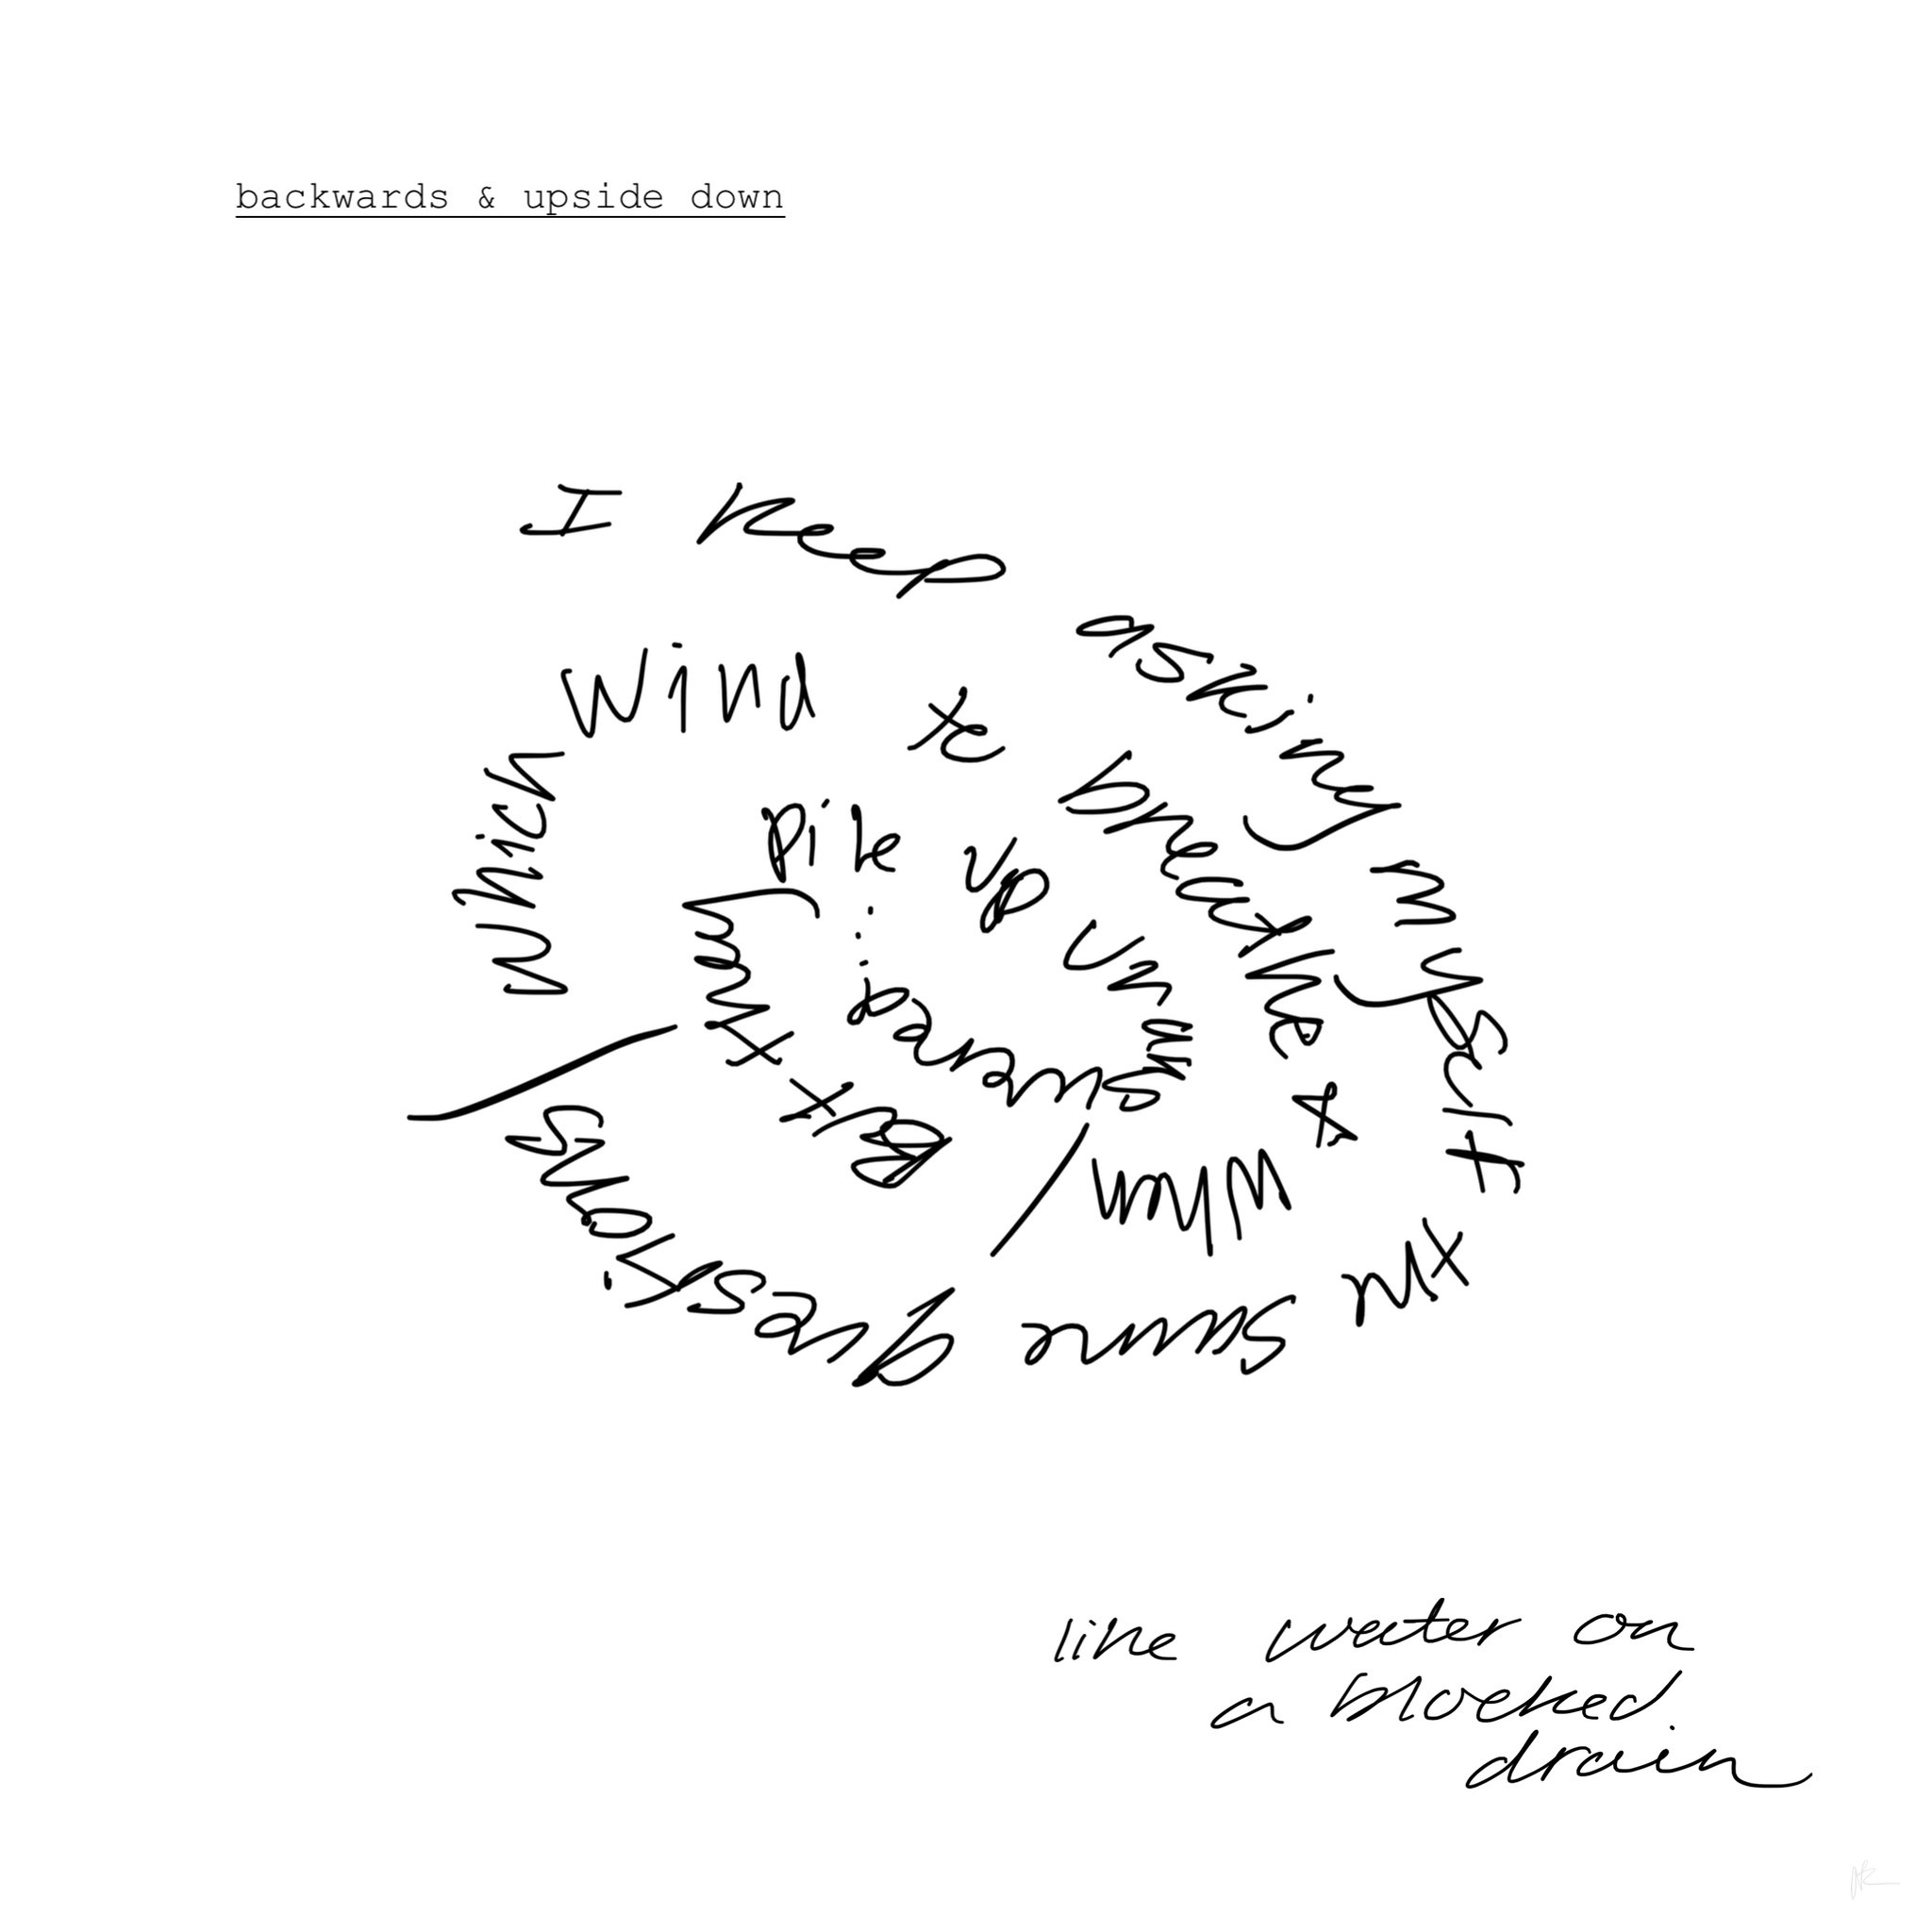 backwards & upside down
I keep asking myself the same questions / which wind to breathe & when / But they pile up unanswered...
like water on
a blocked
drain